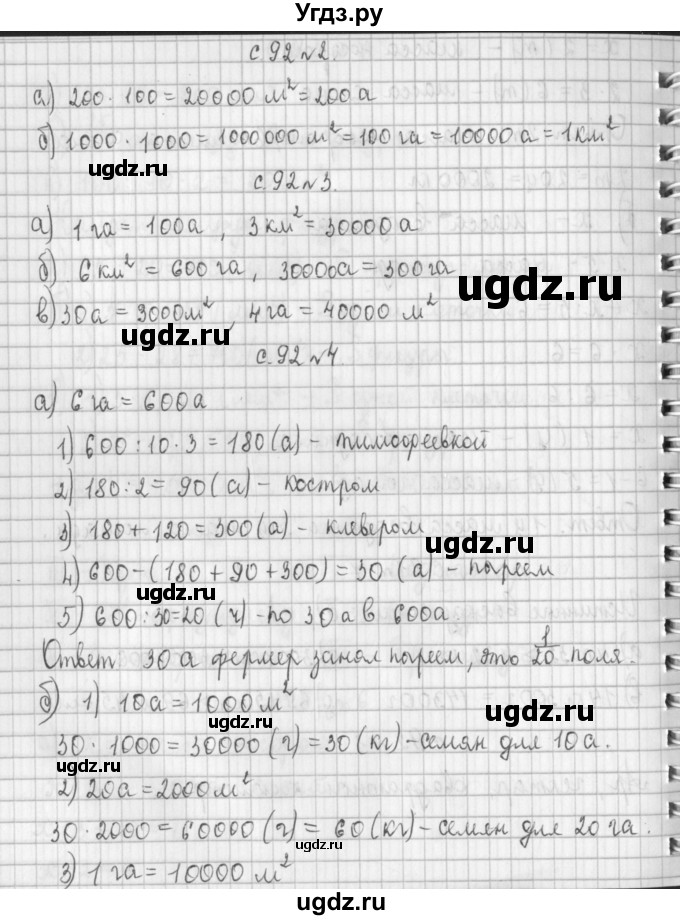 Угдз.ру
с.92 №2.
а) 200 · 100 = 20000 м² = 200 а
б) 1000 · 1000 = 1000000 м² = 100 га = 10000 а = 1 км²
ugdz.ru
с.92 №3.
а) 1 га = 100 а, 3 км² = 30000 а
б) 6 км² = 600 га, 30000а = 300 га
ugdz.ru
в) 30 а = 3000 м², 4 га = 40000 м²
ugdz.ru ugdz.ru
с.92 №4.
а) 6 га = 600 а
1) 600 : 10 · 3 = 180 (а) – тимофеевкой
2) 180 : 2 = 90 (а) – костром
3) 180 + 120 = 300 (а) – клевером
ugdz.ru
4) 600 – (180 + 90 + 300) = 30 (а) – пыреем
ugdz.ru
5) 600 : 30 = 20 (ч) – по 30 а в 600а.
Ответ: 30 а фермер занял пыреем, это 1/20 поля.
б) 1) 10а = 1000 м²
ugdz.ru
30 · 1000 = 30000 (г) = 30 (кг) – семян для 10 а.
ugdz.ru ugdz.ru
2) 20а = 2000 м²
30 · 2000 = 60000 (г) = 60 (кг) – семян для 20 га.
3) 1 га = 10000 м²
ugdz.ru